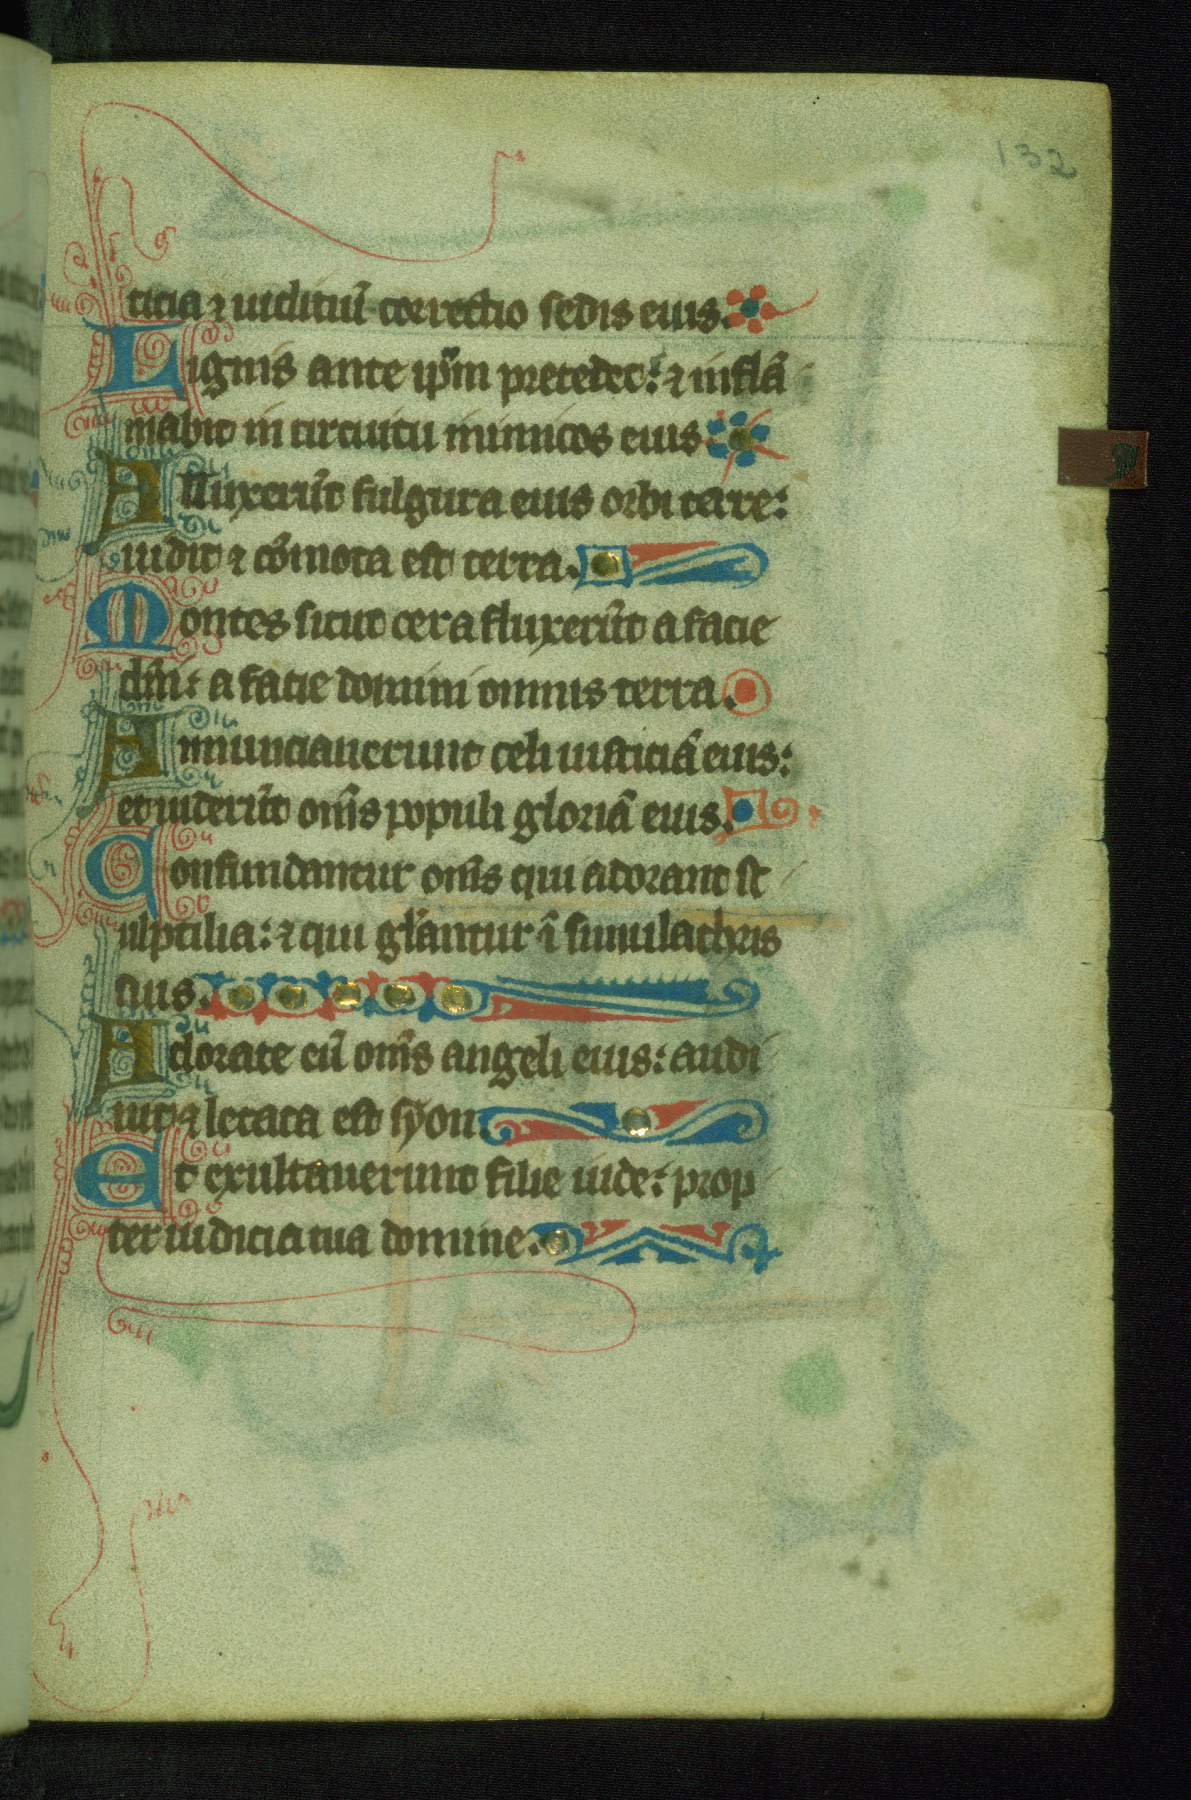 132
ticia ⁊ iudiciū correctio sedis eius.
Lignis ante ip̄m precedet: ⁊ inflā
mabit in circuitu inimicos eius
Alluxerūt fulgura eius orbi terre:
uidit ⁊ cōmota est terra.
Montes sicut cera fluxerūt a facie
dn̄i: a facie domini omnis terra.
Annunciauerunt celi iusticiā eius:
et uiderūt om̄s populi gloriā eius.
Confundantur om̄s qui adorant sc
ulptilia: ⁊ qui gl̄antur ī simulachris
suis.
Adorate eū om̄s angeli eius: audi
uit ⁊ letata est syon.
Et exultauerunt filie iude: prop
ter iudicia tua domine.